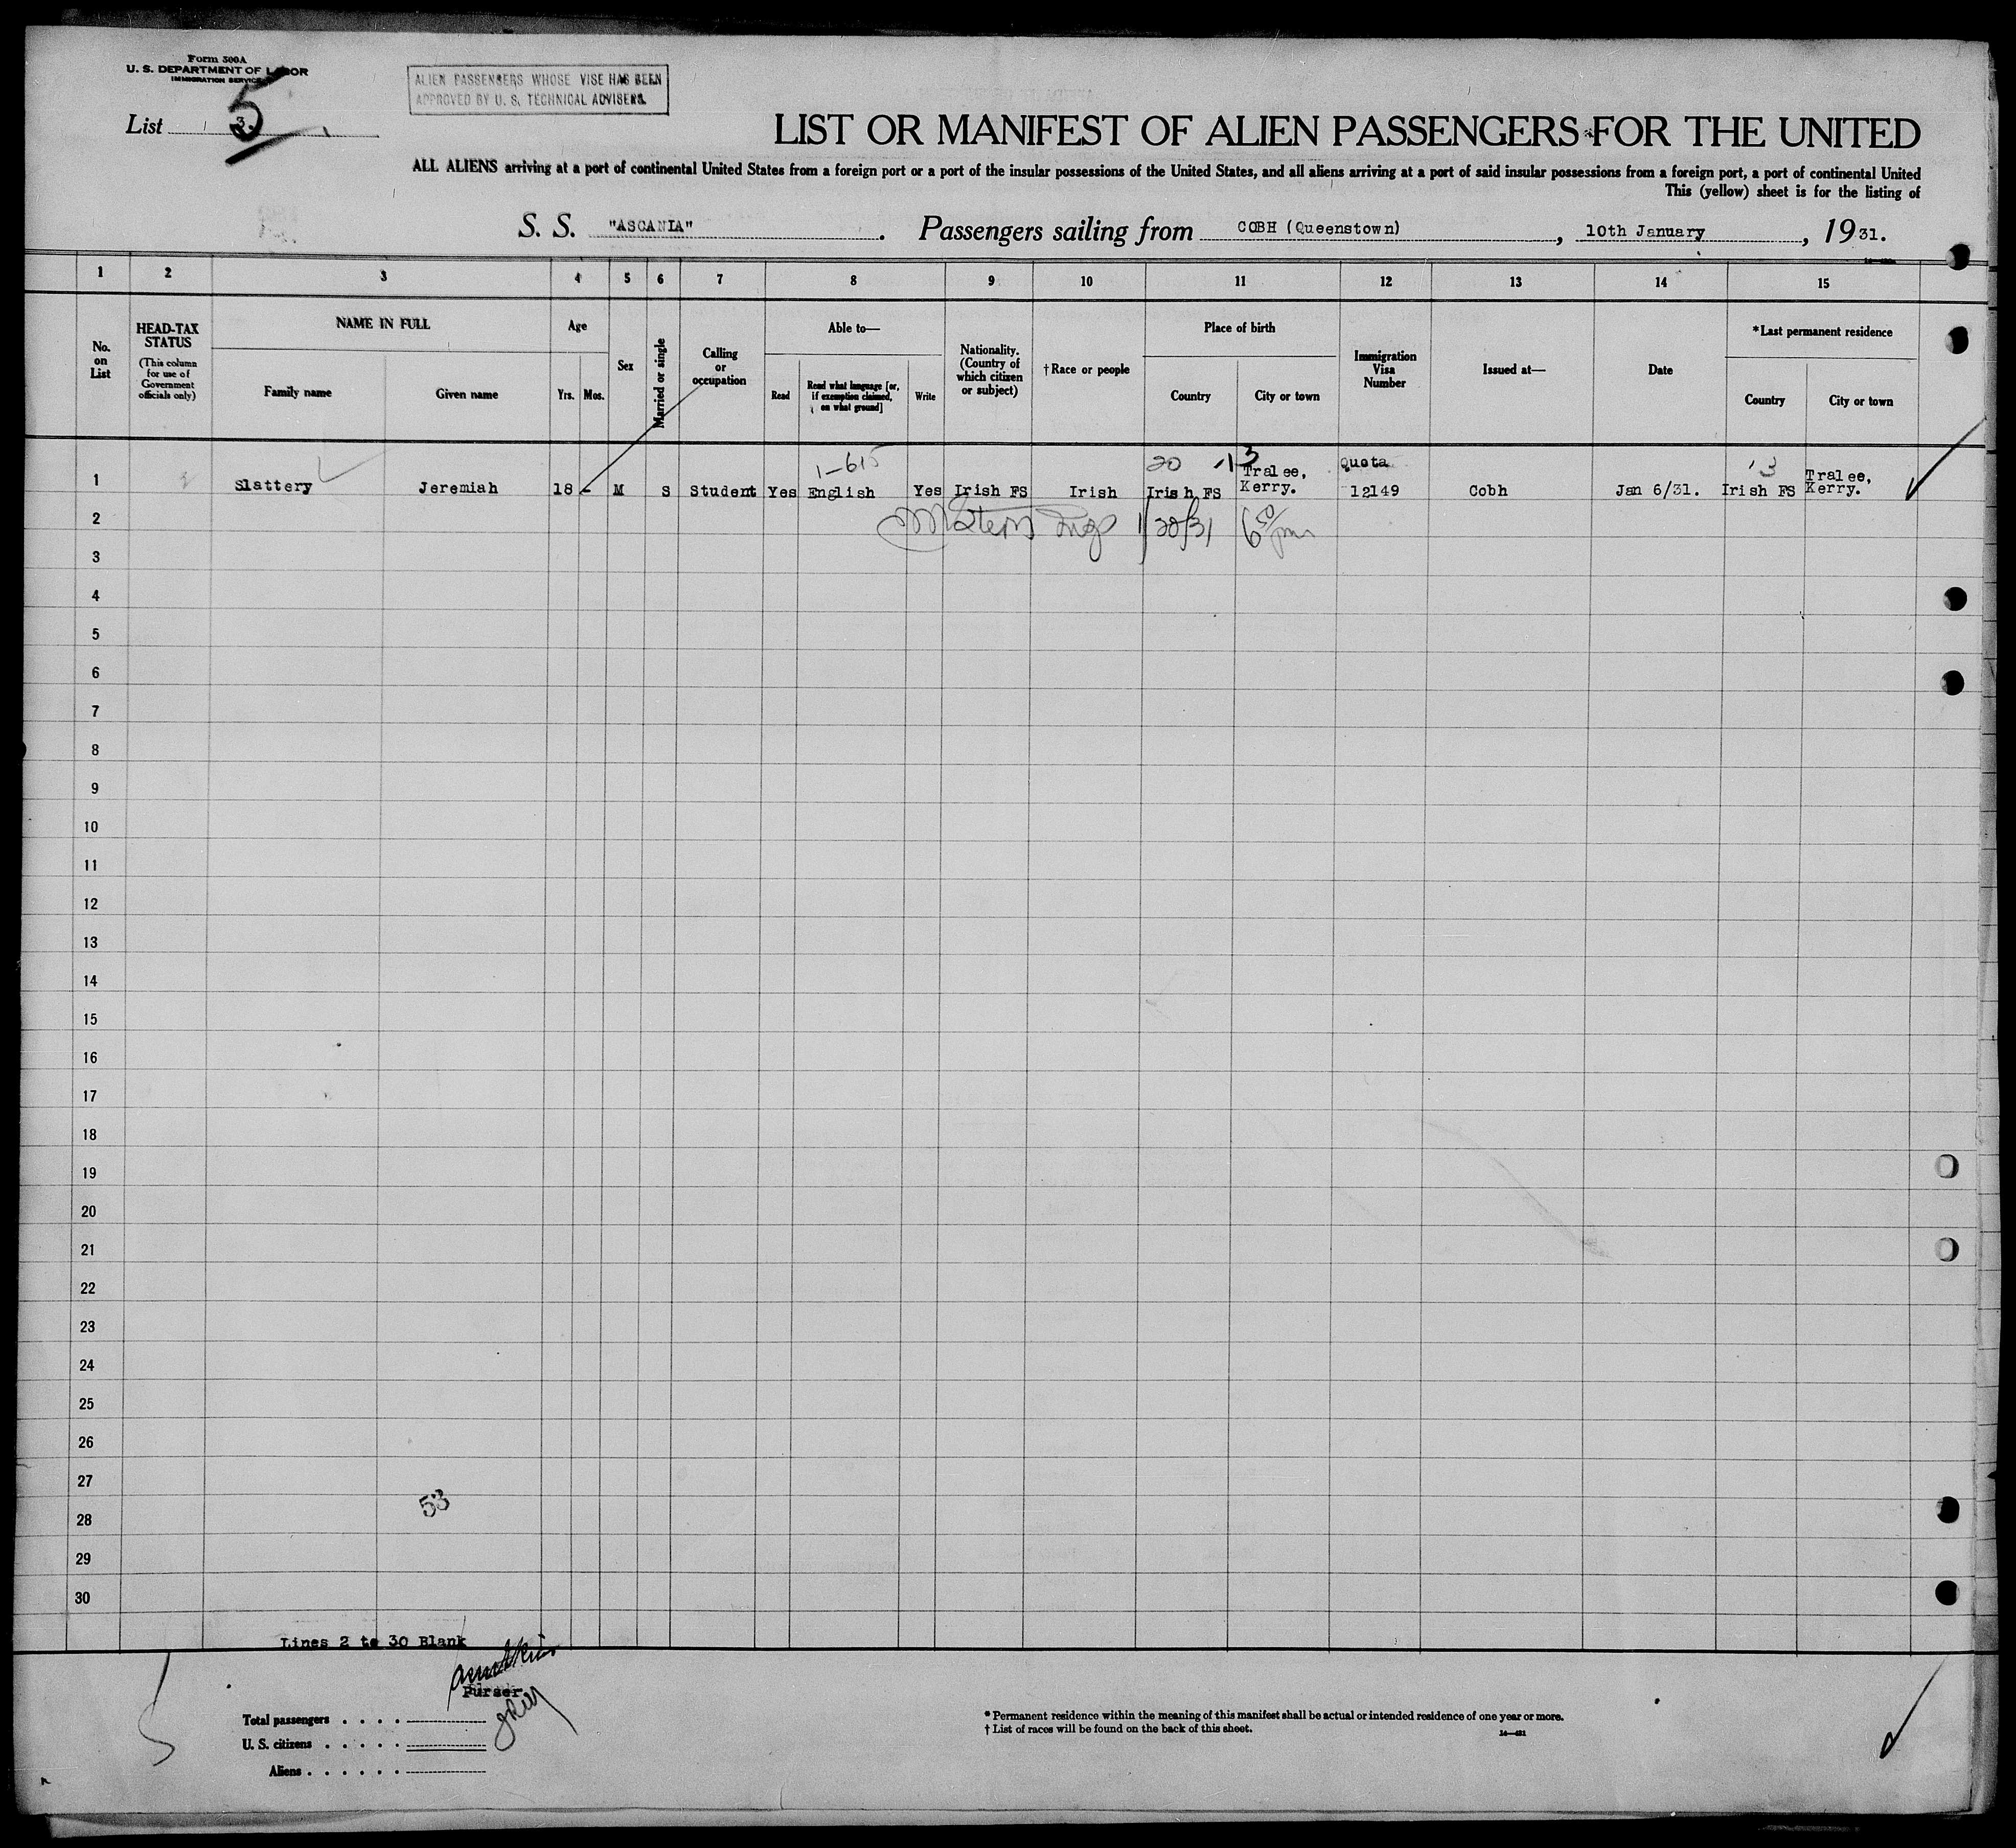 Form 500A
U. S. DEPARTMENT OF LABOR
IMMIGRATION SERVICE
ALIEN PASSENGERS WHOSE VISE HAS BEEN
APPROVED BY U. S. TECHNICAL ADVISERS.
List 3. 5
LIST OR MANIFEST OF ALIEN PASSENGERS FOR THE UNITED
ALL ALIENS arriving at a port of continental United States from a foreign port or a port of the insular possessions of the United States, and all aliens arriving at a port of said insular possessions from a foreign port, a port of continental United
This (yellow) sheet is for the listing of
S. S. "ASCANIA". Passengers sailing from COBH (Queenstown), 10th January, 1931.
1 2 3 4 5 6 7 8 9 10 11 12 13 14 15
No. on List
HEAD-TAX STATUS
(This column for use of Government officials only)
NAME IN FULL
Family name Given name
Age
Yrs. Mos.
Sex
Married or single
Calling or occupation
Able to—
Read
Read what language [or, if exemption claimed, on what ground]
Write
Nationality. (Country of which citizen or subject)
†Race or people
Place of birth
Country City or town
Immigration Visa Number
Issued at—
Date
*Last permanent residence
Country City or town
1-615 20 13 Quota 3
1 Slattery Jeremiah 18 - M S Student Yes English Yes Irish FS Irish Irish FS Tralee, Kerry. 12149 Cobh Jan 6/31. Irish FS Tralee, Kerry.
2 1/22/31 6 50/pm
3
4
5
6
7
8
9
10
11
12
13
14
15
16
17
18
19
20
21
22
23
24
25
26
27
53
28
29
30
Lines 2 to 30 Blank
Purser
Total passengers . . . .
U. S. citizens . . . . .
Aliens . . . . . .
* Permanent residence within the meaning of this manifest shall be actual or intended residence of one year or more.
† List of races will be found on the back of this sheet.